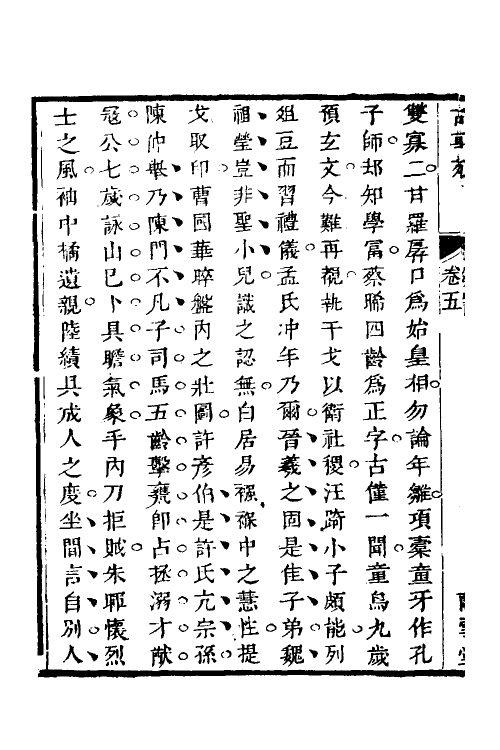 卷五
雙寡二甘羅孱口爲始皇相勿論年雛項橐童牙作孔
子師却知學冨蔡睎四齡爲正字古僅一聞童烏九歲
預玄文今難再覩執干戈以衛社稷汪踦小子頗能列
俎豆而習禮儀孟氏冲年乃爾晉羲之固是佳子弟魏
祖瑩豈非聖小兒識之認無白居易襁褓中之慧性提
戈取印曹國華晬盤内之壯圖許彦伯是許氏亢宗孫
陳仲舉乃陳門不凡子司馬五齡擊甕卽占拯溺才猷
冦公七歲詠山已卜具瞻氣象手内刀拒賊朱鄆懷烈
士之風袖中橘遺親陸績具成人之度坐間言自别人